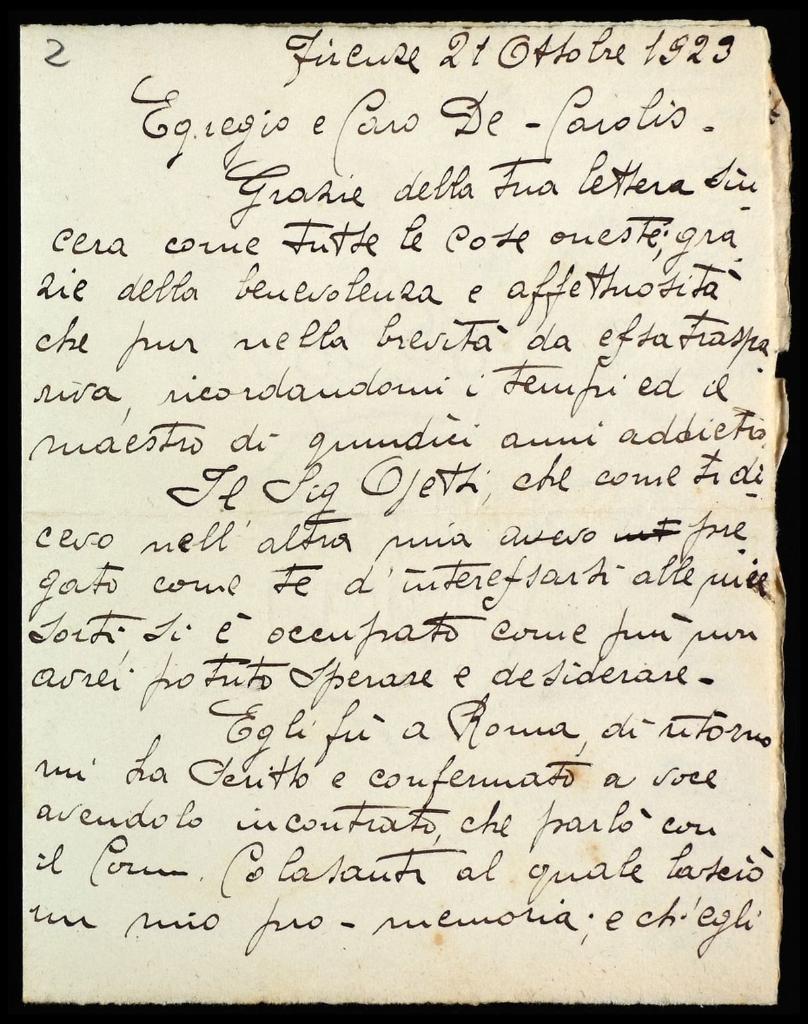 2
Firenze 21 Ottobre 1923
Egregio e Caro De-Carolis.
Grazie della tua lettera sin-
cera come tutte le cose oneste; gra-
zie della benevolenza e affettuosità
che pur nella brevità da essa traspa
riva, ricordandomi i tempi ed il
maestro di quindici anni addietro.
Il Sig Ojetti, che come ti di-
cevo nell'altra mia avevo pre
gato come te d'interessarsi alle mie
sorti, si è occupato come più non
avrei potuto sperare e desiderare-
Egli fù a Roma, di ritorno
mi ha scritto e confermato a voce
avendolo incontrato, che parlò con
il Comm. Colasanti al quale lasciò
un mio pro-memoria; e ch'egli